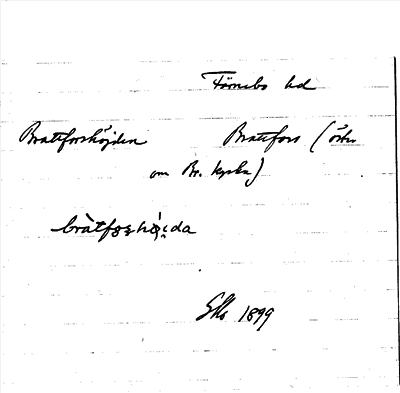 Färnebo hd
Brattforshöjden Brattfors (öster
om Br. kyrka)
bràtforshö̀i̯da
1899